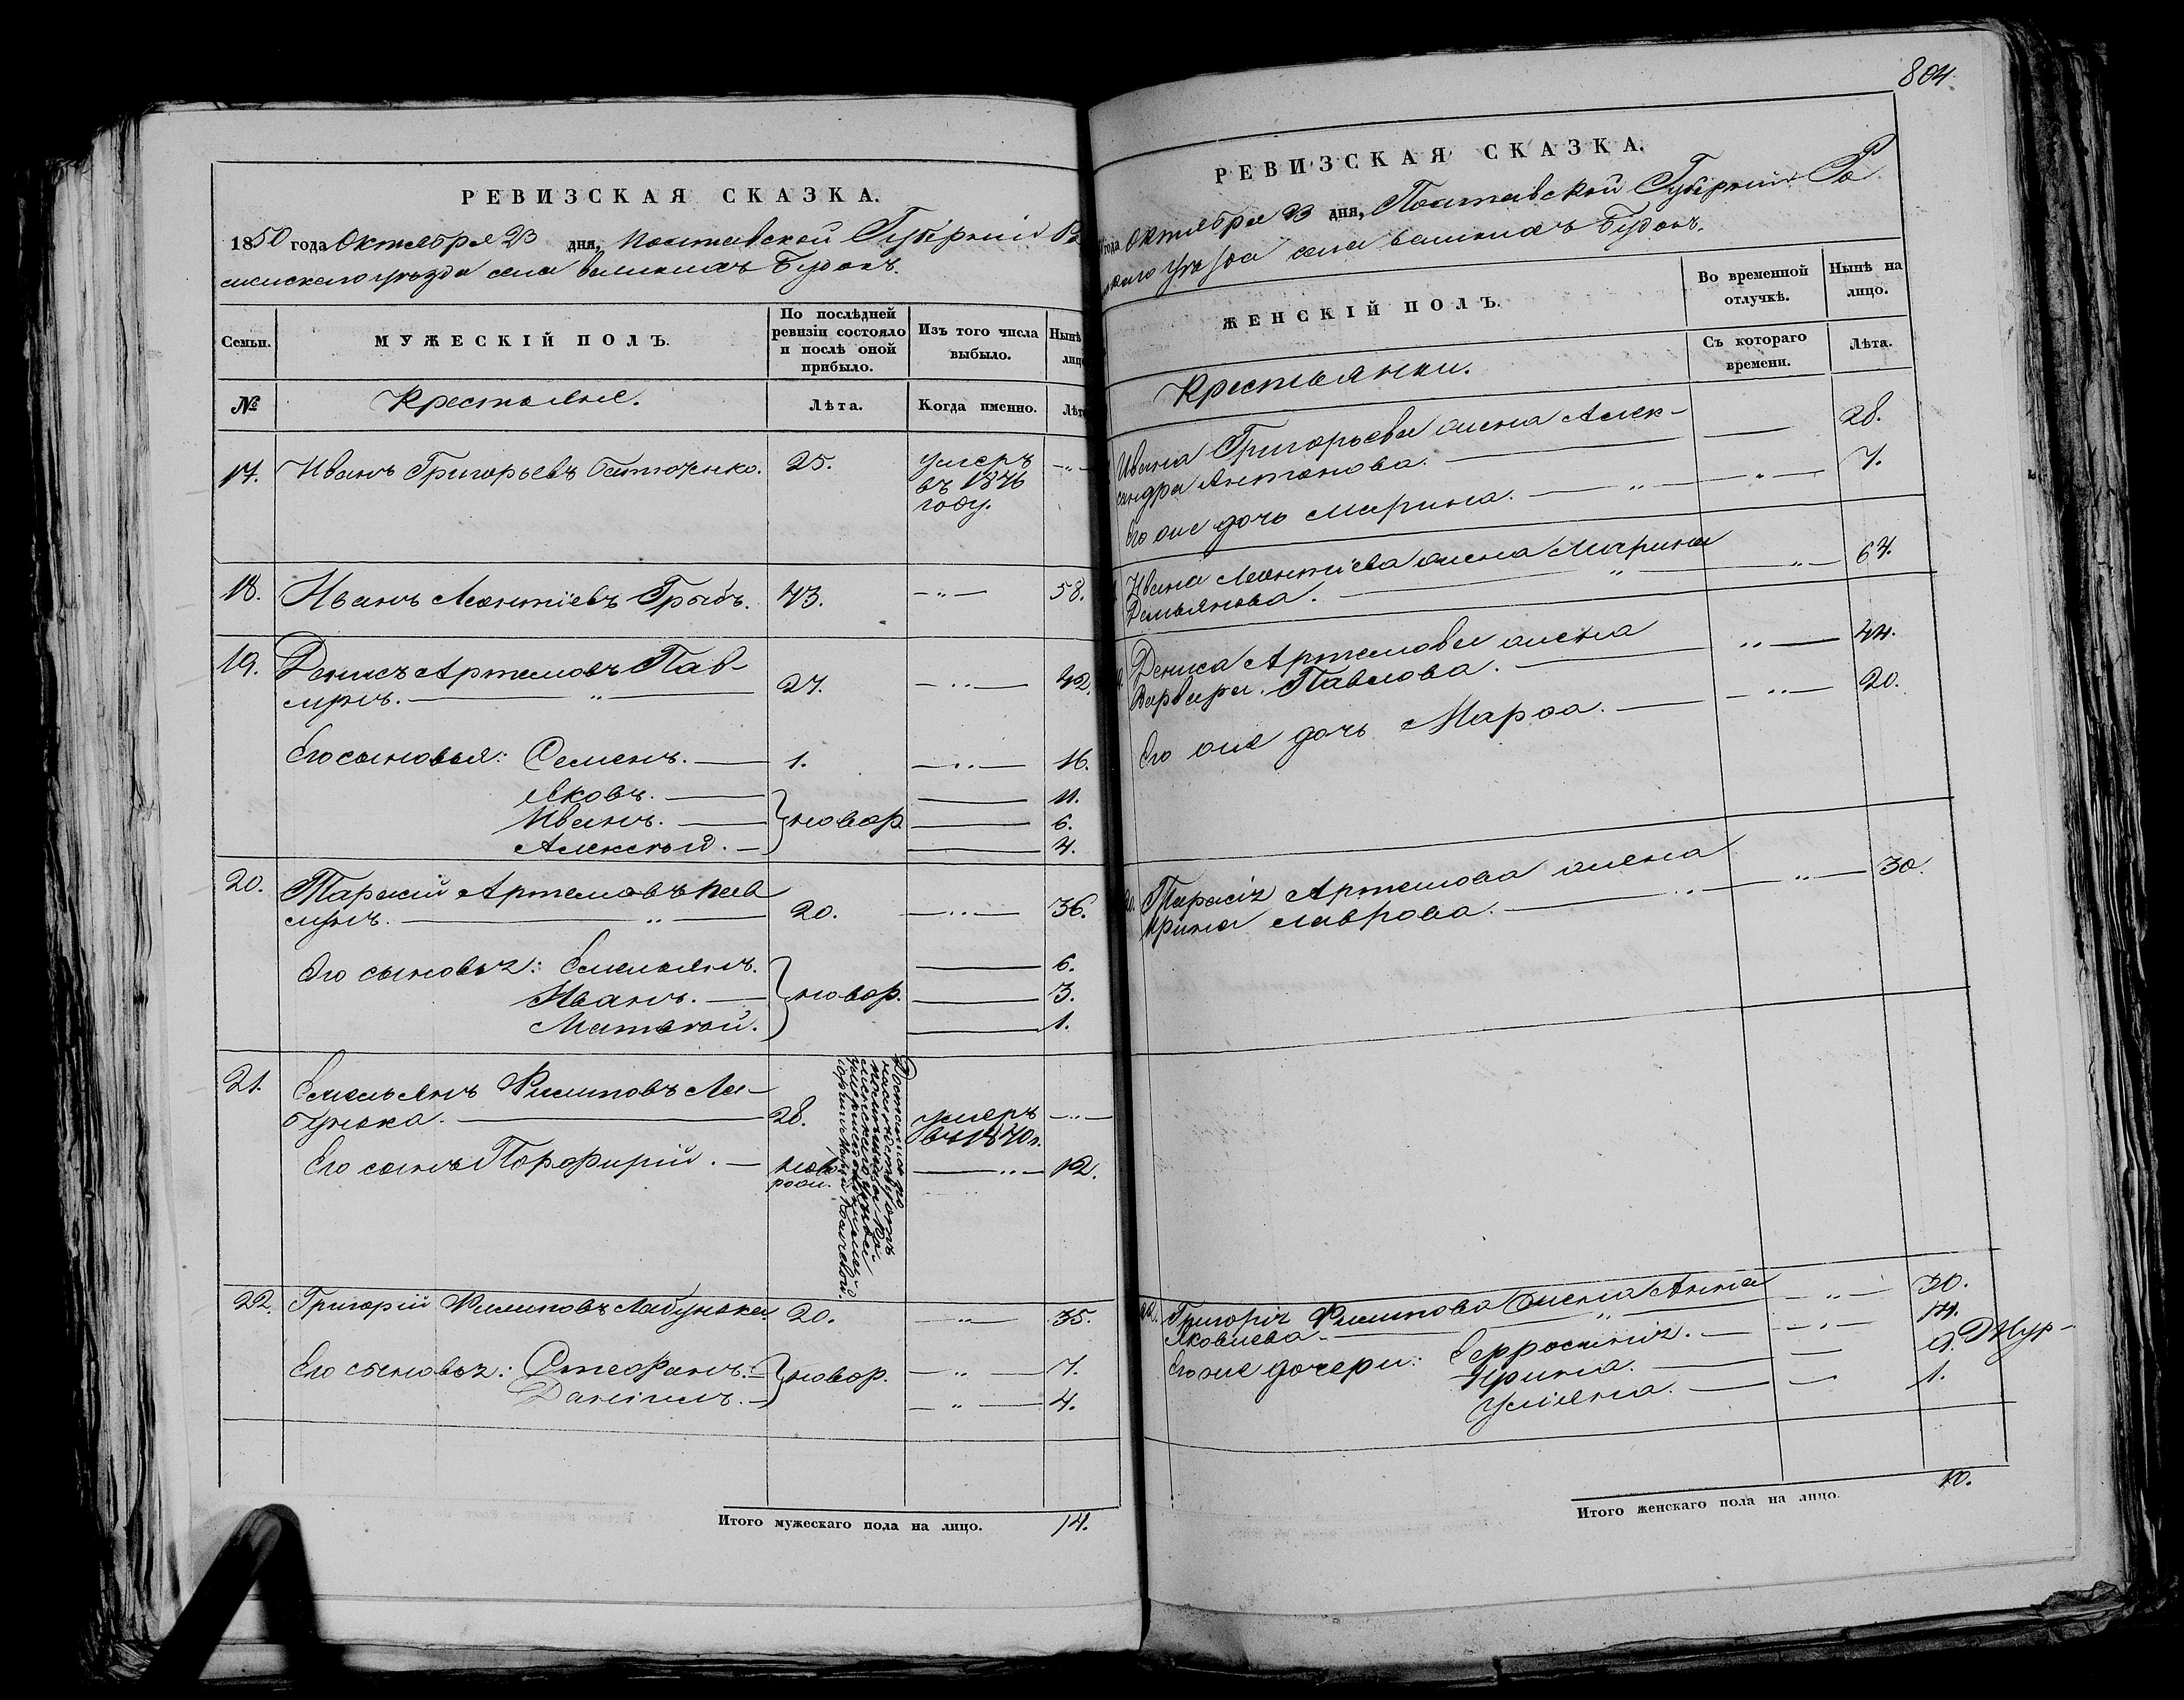 РЕВИЗСКАЯ СКАЗКА.
1850 года Октября 23 дня, Полтавской Губерніи Ро
менскаго уѣзда села великихъ Будокъ.
Семьи.
МУЖЕСКІЙ ПОЛЪ.
По послѣдней ревизіи состояло и послѣ оной прибыло.
Изъ того числа выбыло.
Нынѣ
лиц
№
Крестьяне.
Лѣта.
Когда именно.
Лѣт
17. Иванъ Григорьевъ 25. умеръ
въ 1846
году.
18. Иванъ Леонтіевъ Грыбъ. 43. 58.
19. Денисъ Артемовъ Пав-
лунъ. 27. 42.
Его сыновья: Семенъ. 1. 16.
Яковъ. 11.
Иванъ. новор 6.
Алексѣй. 4.
20. Тарасій Артемовъ Пав
лунъ. 20. 36.
Его сыновья: Емельянъ. 6.
Иванъ. новор. 3.
Матвѣй. 1.
21. Емельянъ Филиповъ Ла-
бунька. 28. умеръ
въ 1840 г.
Его сынъ Порфирій. ново
рож. 12.
22. Григорій Филиповъ Лабунька. 20. 35.
Его сыновья: Стефанъ. новор. 7.
Даніилъ. 4.
Итого мужескаго пола на лицо. 14.
804
РЕВИЗСКАЯ СКАЗКА.
года Октября 23 дня, Полтавской Губерніи Ро
скаго уѣзда села великихъ Будокъ.
ЖЕНСКІЙ ПОЛЪ.
Во временной отлучкѣ.
Нынѣ на лицо.
Съ котораго времени.
Лѣта.
Крестьянки.
Ивана Григорьева жена Алек- 28.
сандра Антонова.
Его же дочь Марина. 7.
Ивана Леонтіева жена Марина 64.
Демьянова.
Дениса Артемова жена 44.
Варвара Павлова.
Его же дочь Марфа. 20.
20. Тарасія Артемова жена 30.
Ирина Лаврова.
22. Григорія Филипова жена Анна 30.
Яковлева.
Его же дочери: Евфросинія. 14.
Ирина. 9.
Уліяна. 1.
Итого женскаго пола на лицо. 10.